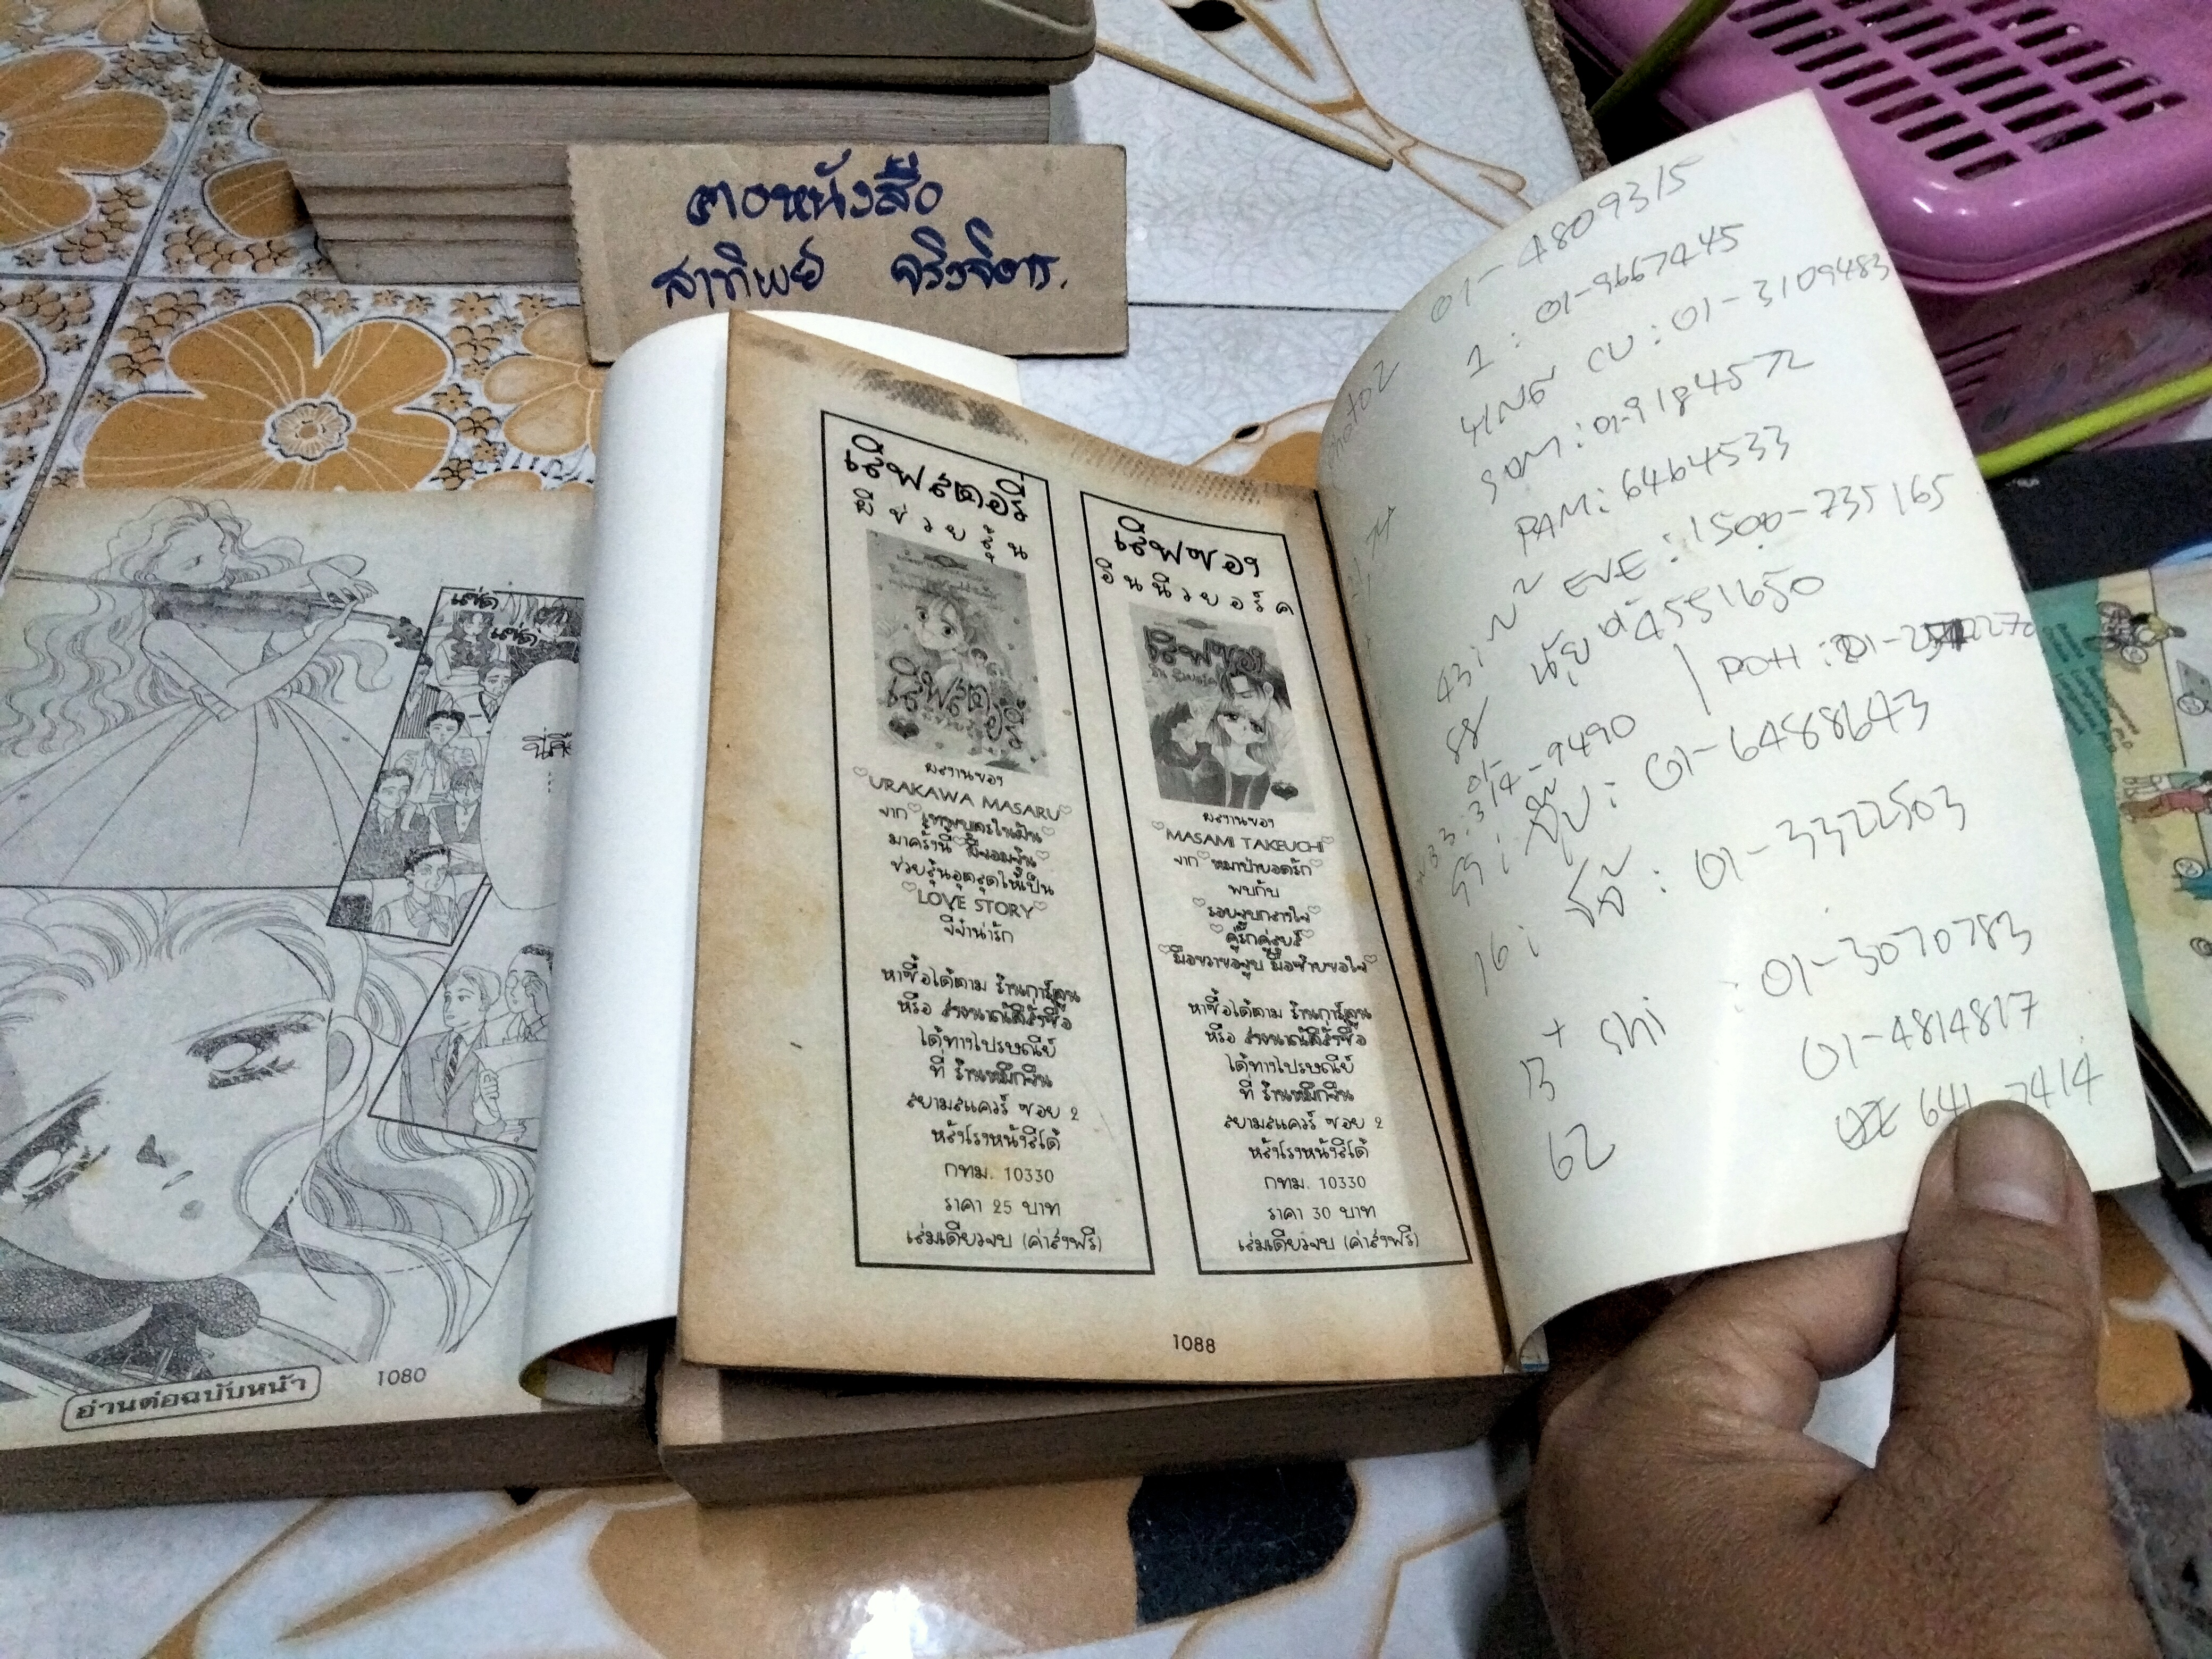 ฅอหนังสือ
สาทิพย์ จริงจิตร.
แช่ด
แช่ด
นี่คือ
อ่านต่อฉบับหน้า
1080
เลิฟสตอรี่
ผีช่วยลุ้น
ผลงานของ
URAKAWA MASARU
จาก
มาครั้งนี้
ช่วยลุ้นอุตลุดให้เป็น
LOVE STORY
จี๊จ๋าน่ารัก
หาซื้อได้ตาม ร้านการ์ตูน
หรือ ส่งธนาณัติสั่งซื้อ
ได้ทางไปรษณีย์
ที่ ร้านหมึกจีน
สยามสแควร์ ซอย 2
หลังโรงหนังลิโด้
กทม. 10330
ราคา 25 บาท
เล่มเดียวจบ (ค่าส่งฟรี)
เลิฟซอง
อินนิวยอร์ค
เลิฟซอง
ผลงานของ
MASAMI TAKEUCHI
จาก หมาป่ายอดรัก
พบกับ
รอยจูบกลางใจ
หาซื้อได้ตาม ร้านการ์ตูน
หรือ ส่งธนาณัติสั่งซื้อ
ได้ทางไปรษณีย์
ที่ ร้านหมึกจีน
สยามสแควร์ ซอย 2
หลังโรงหนังลิโด้
กทม. 10330
ราคา 30 บาท
เล่มเดียวจบ (ค่าส่งฟรี)
1088
01-4809315
1 : 01-9667445
CU : 01-3109483
SOM : 01-9184572
PAM : 6464533
EVE : 1500-735165
43 :
88 นุ้ย 4551650
01-314-9490
POH :
01-6488643
16 : 01-3322503
13 + Shi : 01-3070783
62 01-4814817
641-7414